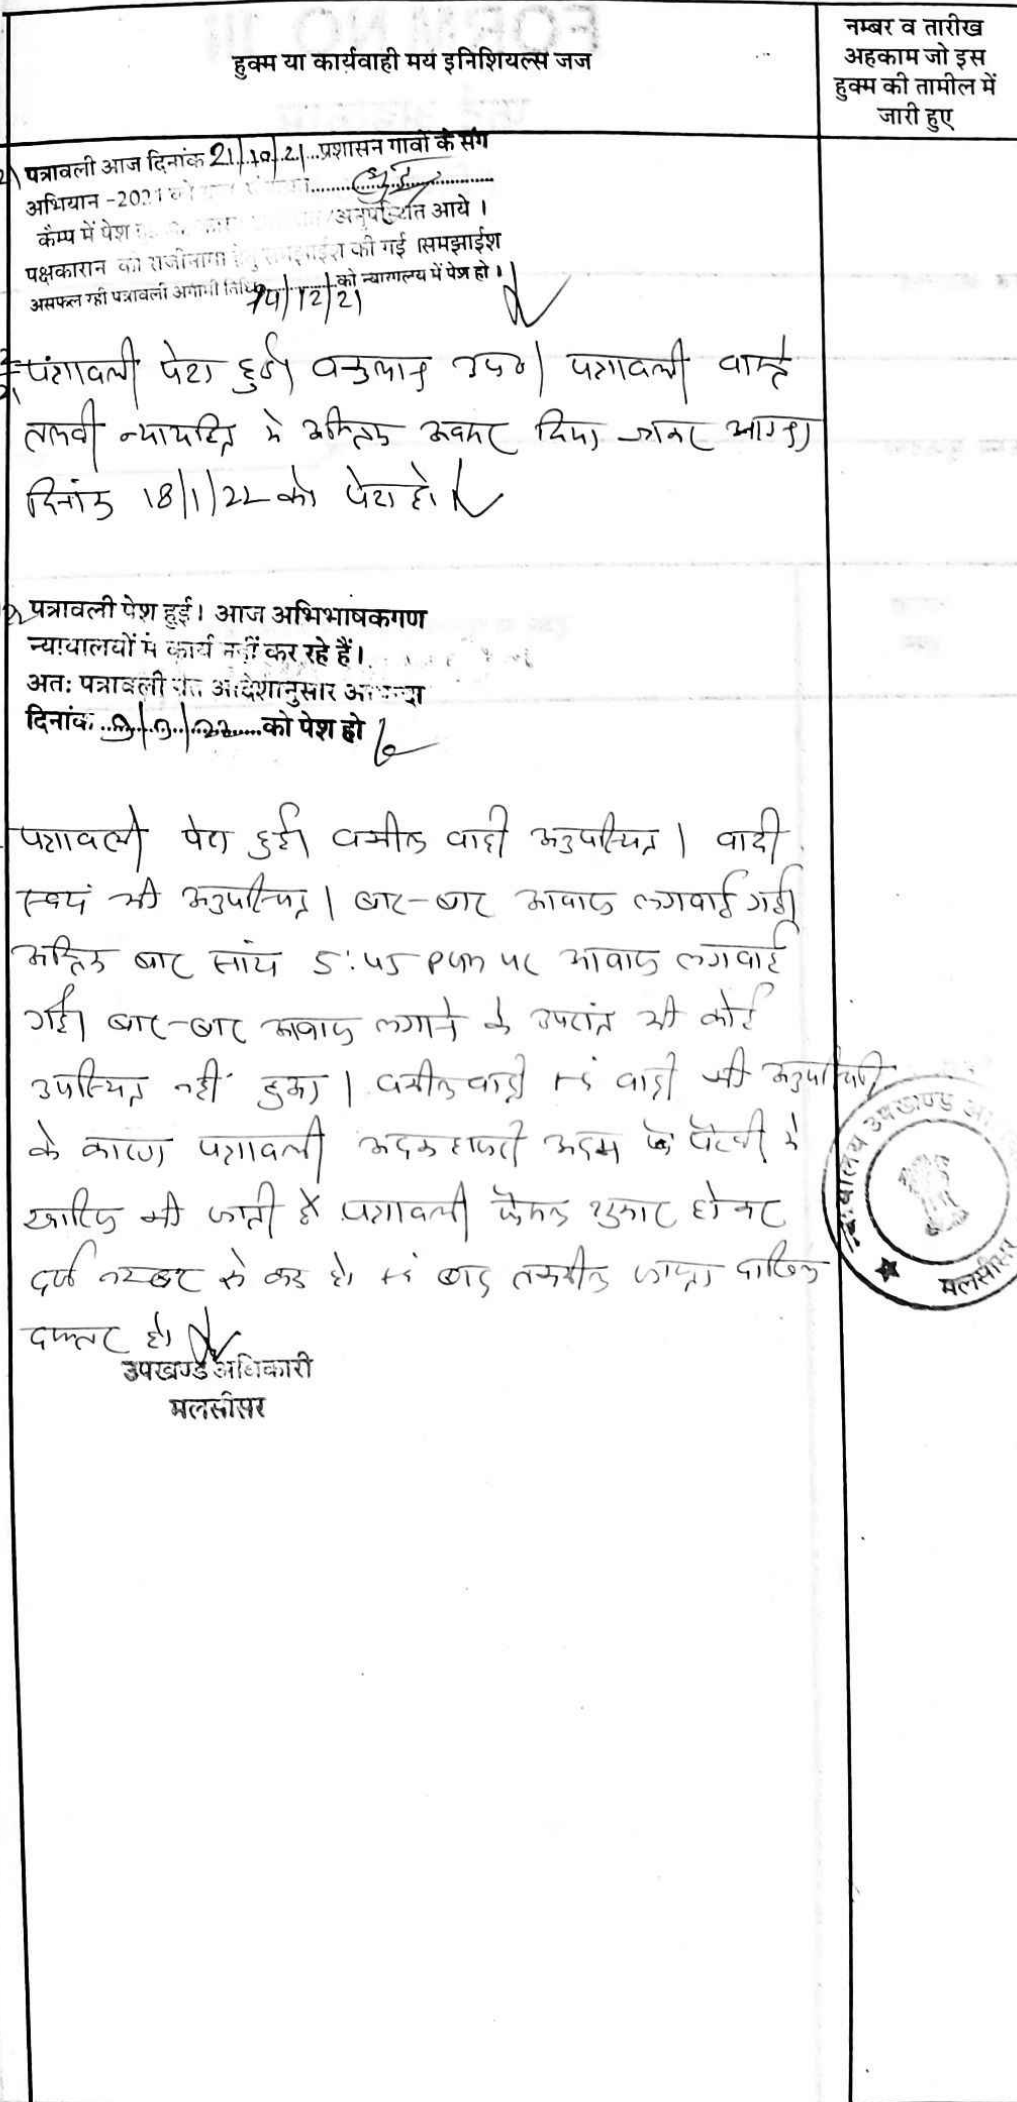 हुक्म या कार्यवाही मय इनिशियल्स जज
नम्बर व तारीख
अहकाम जो इस
हुक्म की तामील में
जारी हुए
पत्रावली आज दिनांक 21/10/21 प्रशासन गावों के संग
अभियान -2021
कैम्प में पेश अनुपस्थित आये ।
पक्षकारान को राजीनामा हेतु समझाईश की गई ।समझाईश
असफल रही पत्रावली अगामी तिथि 14/12/21 को न्यायालय में पेश हो ।
पत्रावली पेश हुई। वकुलाय उप०। पत्रावली वास्ते
तलवी न्यायहित में अन्तिम अवसर दिया जाकर आगामी
दिनांक 18/1/22 को पेश हो।
पत्रावली पेश हुई। आज अभिभाषकगण
न्यायालयों में कार्य नहीं कर रहे हैं।
अतः पत्रावली आदेशानुसार आयन्दा
दिनांक 9/3/22 को पेश हो
पत्रावली पेश हुई। वकील वादी अनुपस्थित। वादी
स्वयं भी अनुपस्थित। बार-बार आवाज लगवाई गई।
अन्तिम बार सांय 5:45 PM पर आवाज लगवाई
गई। बार-बार आवाज लगाने के उपरांत भी कोई
उपस्थित नहीं हुआ। वकील वादी एवं वादी की अनुपस्थिति
के कारण पत्रावली अदम हाजरी अदम पैरवी में
खारिज की जाती है पत्रावली फैसल शुमार होकर
दर्ज नम्बर से कम हो। बाद तकमील जाप्ता दाखिल
दफ्तर हो।
उपखण्ड अधिकारी
मलसीसर
न्यायालय उपखण्ड
मलसीसर